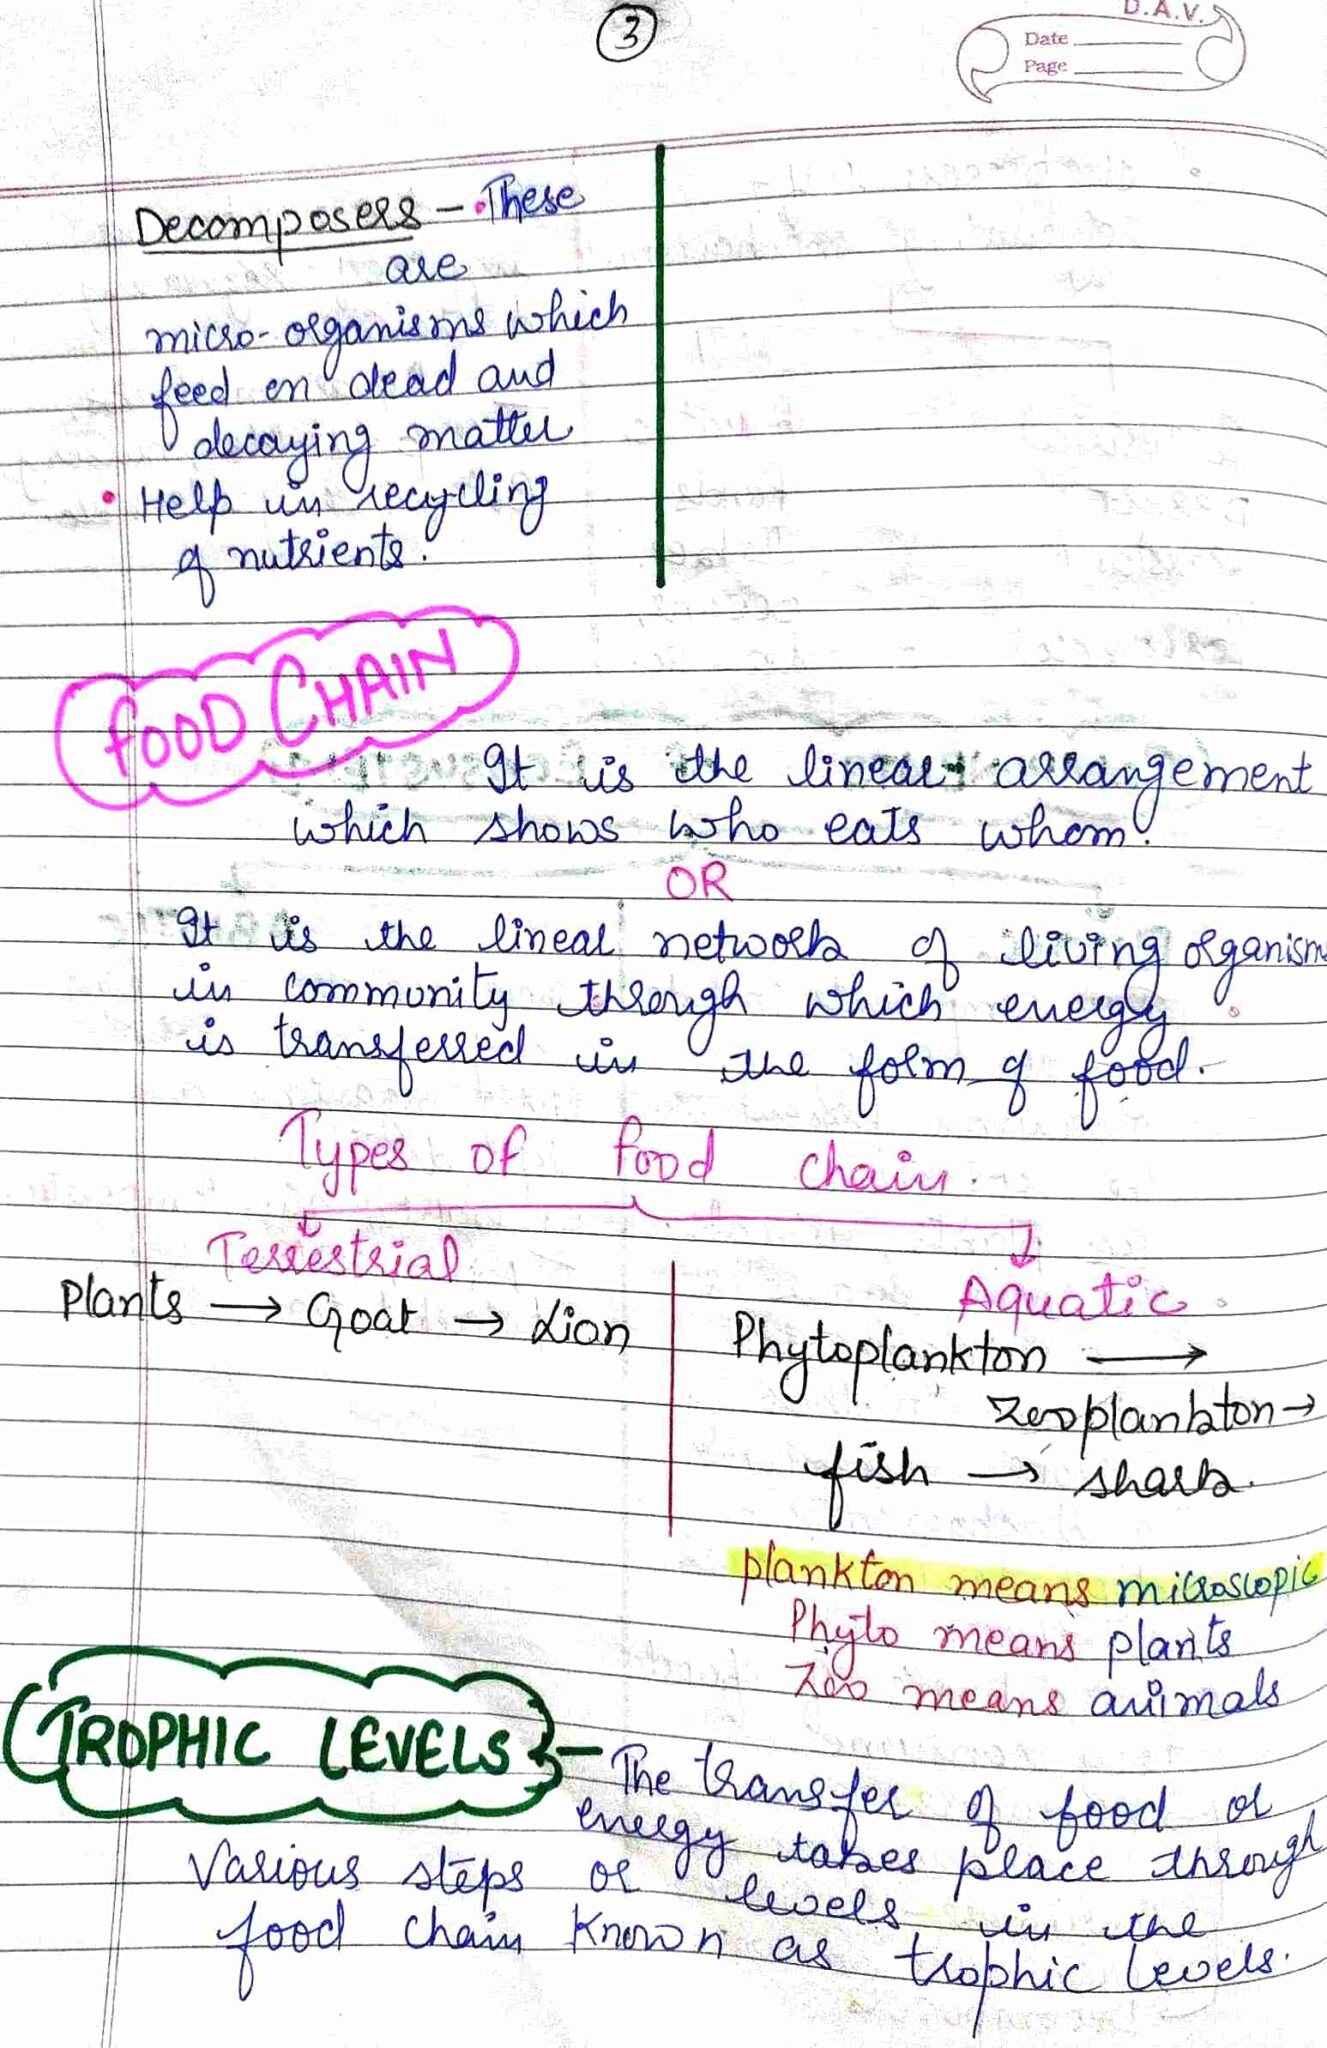 3
D.A.V.
Date
Page
Decomposers - • These
are
micro-organisms which
feed on dead and
decaying matter
• Help in recycling
of nutrients.
FOOD CHAIN
It is the linear arrangement
which shows who eats whom.
OR
It is the linear network of living organism
in community through which energy
is transferred in the form of food.
Types of food chain.
Terrestrial
Plants → Goat → Lion
Aquatic.
Phytoplankton →
Zooplankton →
fish → shark.
plankton means microscopic
Phyto means plants
Zoo means animals
TROPHIC LEVELS - The transfer of food or
energy takes place through
various steps or levels in the
food chain known as trophic levels.